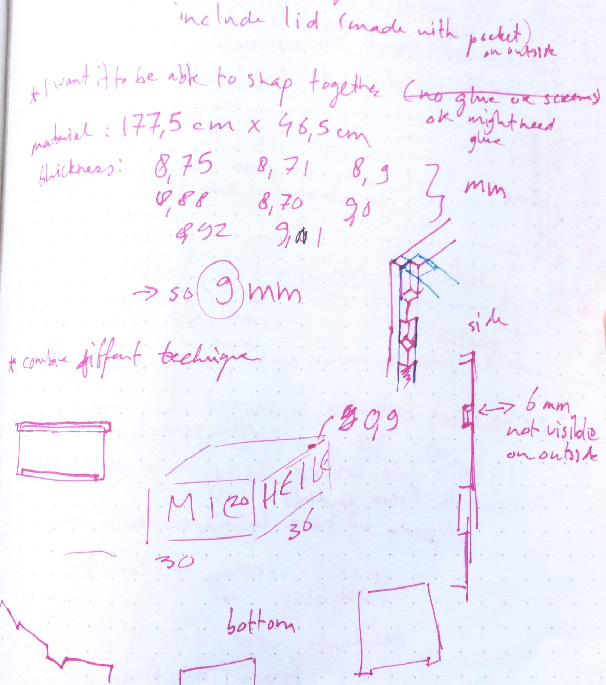 include lid (made with pocket)
on outside
* I want it to be able to snap together (no glue or screws)
ok might need
glue
material: 177,5 cm x 46,5 cm
thickness: 8,75 8,71 8,9
8,88 8,70 9,0
8,92 9,01
mm
→ so 9 mm
side
* combine diffent technique
6 mm
not visible
on outside
0,9
30
36
bottom